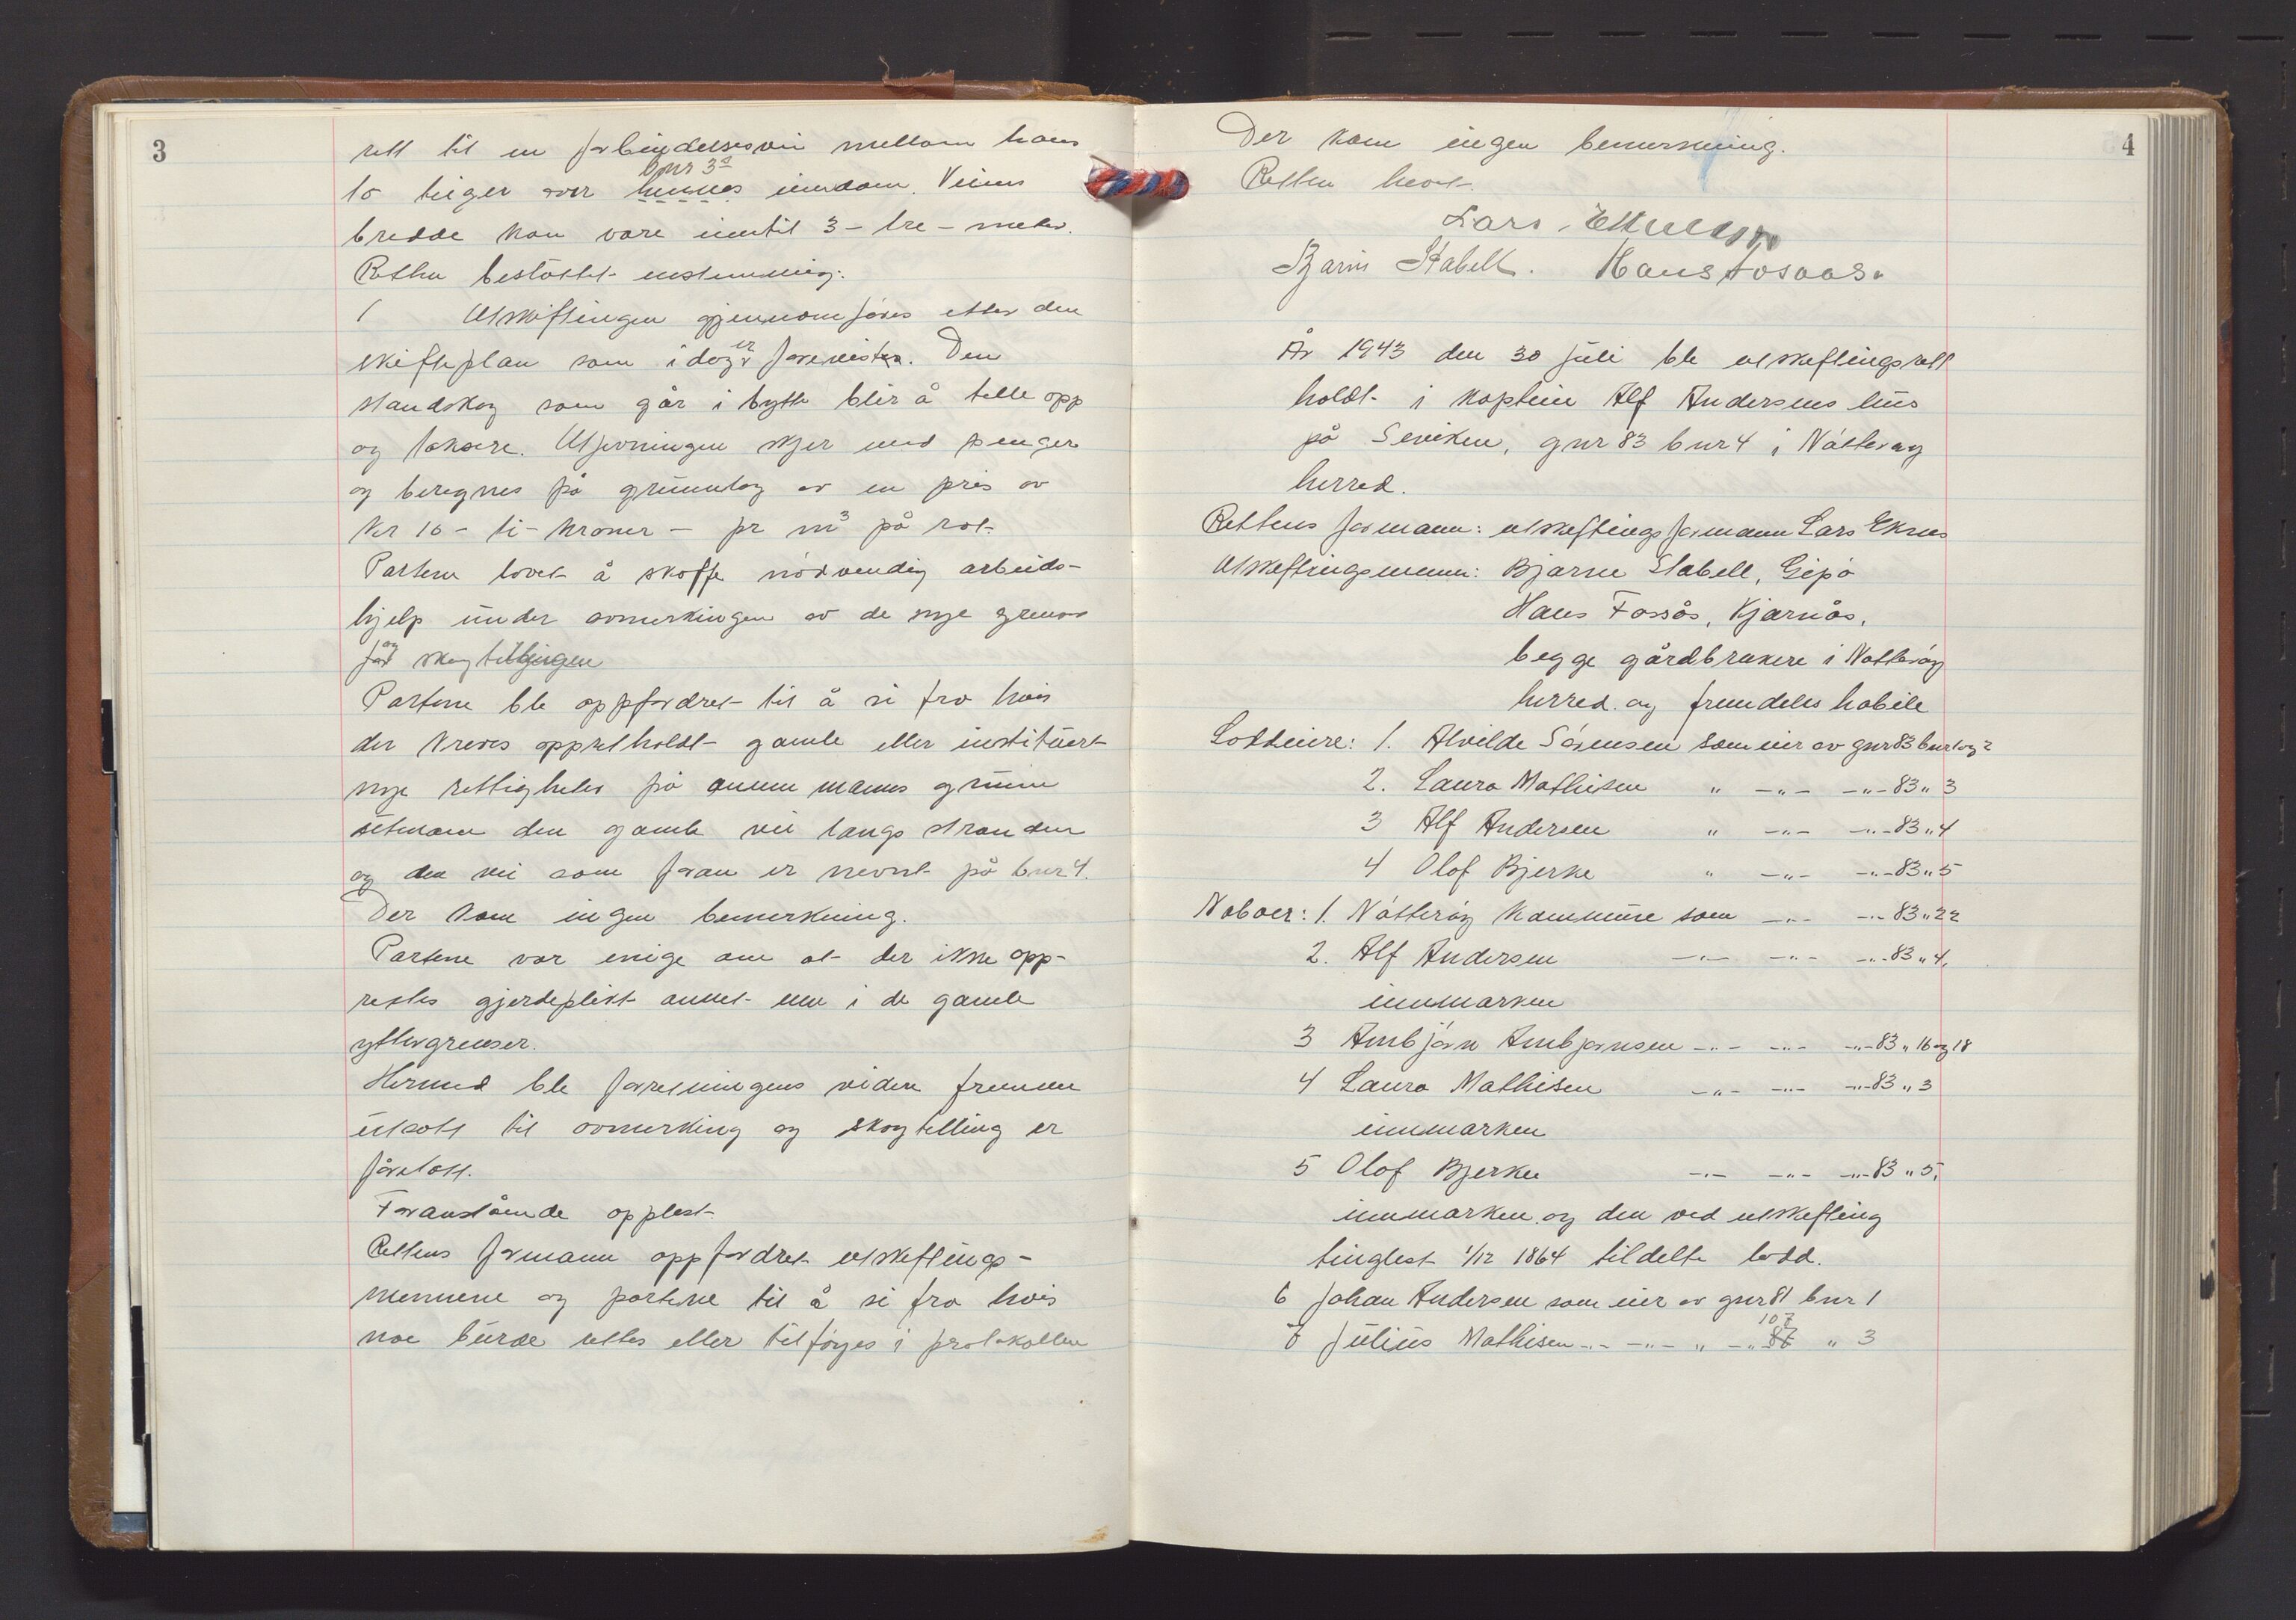 3
rett til en forbindelsesvei mellom hans
bnr 3s
to teiger over hennes eiendom. Veiens
bredde kan være inntil 3 - tre - meter.
Retten besluttet enstemmig:
1 Utskiftingen gjennomføres etter den
skifteplan som i dag er forevist. Den
standskog som går i bytte blir å telle opp
og taksere. Utjevningen skjer med penger
og beregnes på grunnlag av en pris av
kr 10 - ti - kroner - pr m³ på rot.
Partene lovet å skaffe nødvendig arbeids-
hjelp under avmerkingen av de nye grenser
og for skogtellingen
Partene ble oppfordret til å si fra hvis
der kreves oppretholdt gamle eller instituert
nye rettigheter på annen manns grunn
utenom den gamle vei langs stranden
og den vei som foran er nevnt på bnr 4.
Der kom ingen bemerkning.
Partene var enige om at der ikke opp-
rettes gjerdeplikt annet enn i de gamle
yttergrenser.
Hermed ble forretningens videre fremme
utsatt til avmerking og skogtelling er
foretatt.
Foranstående opplest
Rettens formann oppfordret utskiftings-
mennene og partene til å si fra hvis
noe burde rettes eller tilføyes i protokollen
4
Der kom ingen bemerkning.
Retten hevet.
Lars Eknes
Bjarne Stabell. Hans Fosaas.
År 1943 den 30 juli ble utskiftingsrett
holdt i kaptein Alf Andersens hus
på Seviken, gnr 83 bnr 4 i Nøtterøy
herred.
Rettens formann: utskiftingsformann Lars Eknes
Utskiftingsmenn: Bjarne Stabell, Gipø
Hans Fossås, Kjærnås,
begge gårdbrukere i Nøtterøy
herred og fremdeles habile
Loddeiere: 1. Alvilde Sørensen som eier av gnr 83 bnr 1 og 2
2. Laura Mathisen " -"- -"- 83 " 3
3 Alf Andersen " -"- -"- 83 " 4
4 Olof Bjerke " -"- -"- 83 " 5
Naboer: 1. Nøtterøy kommune som -"- -"- 83 " 22
2. Alf Andersen -"- -"- -"- 83 " 4,
innmarken
3 Arnbjørn Arnbjørnsen -"- -"- -"- 83 " 16 og 18
4 Laura Mathisen -"- -"- -"- 83 " 3
innmarken
5 Olof Bjerke -"- -"- -"- 83 " 5,
innmarken og den ved utskifting
tinglest 1/12 1864 tildelte lodd.
6 Johan Andersen som eier av gnr 81 bnr 1
107
7 Julius Mathisen -"- -"- " -"- 87 " 3